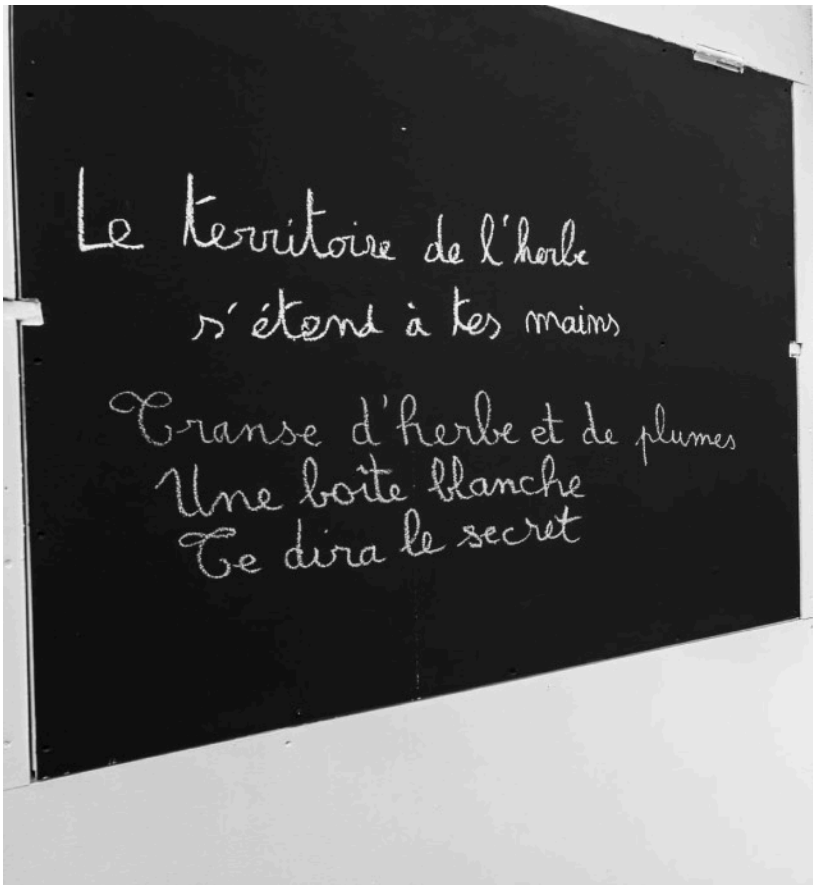 Le territoire de l'herbe
s'étend à tes mains
Transe d'herbe et de plumes
Une boîte blanche
Te dira le secret